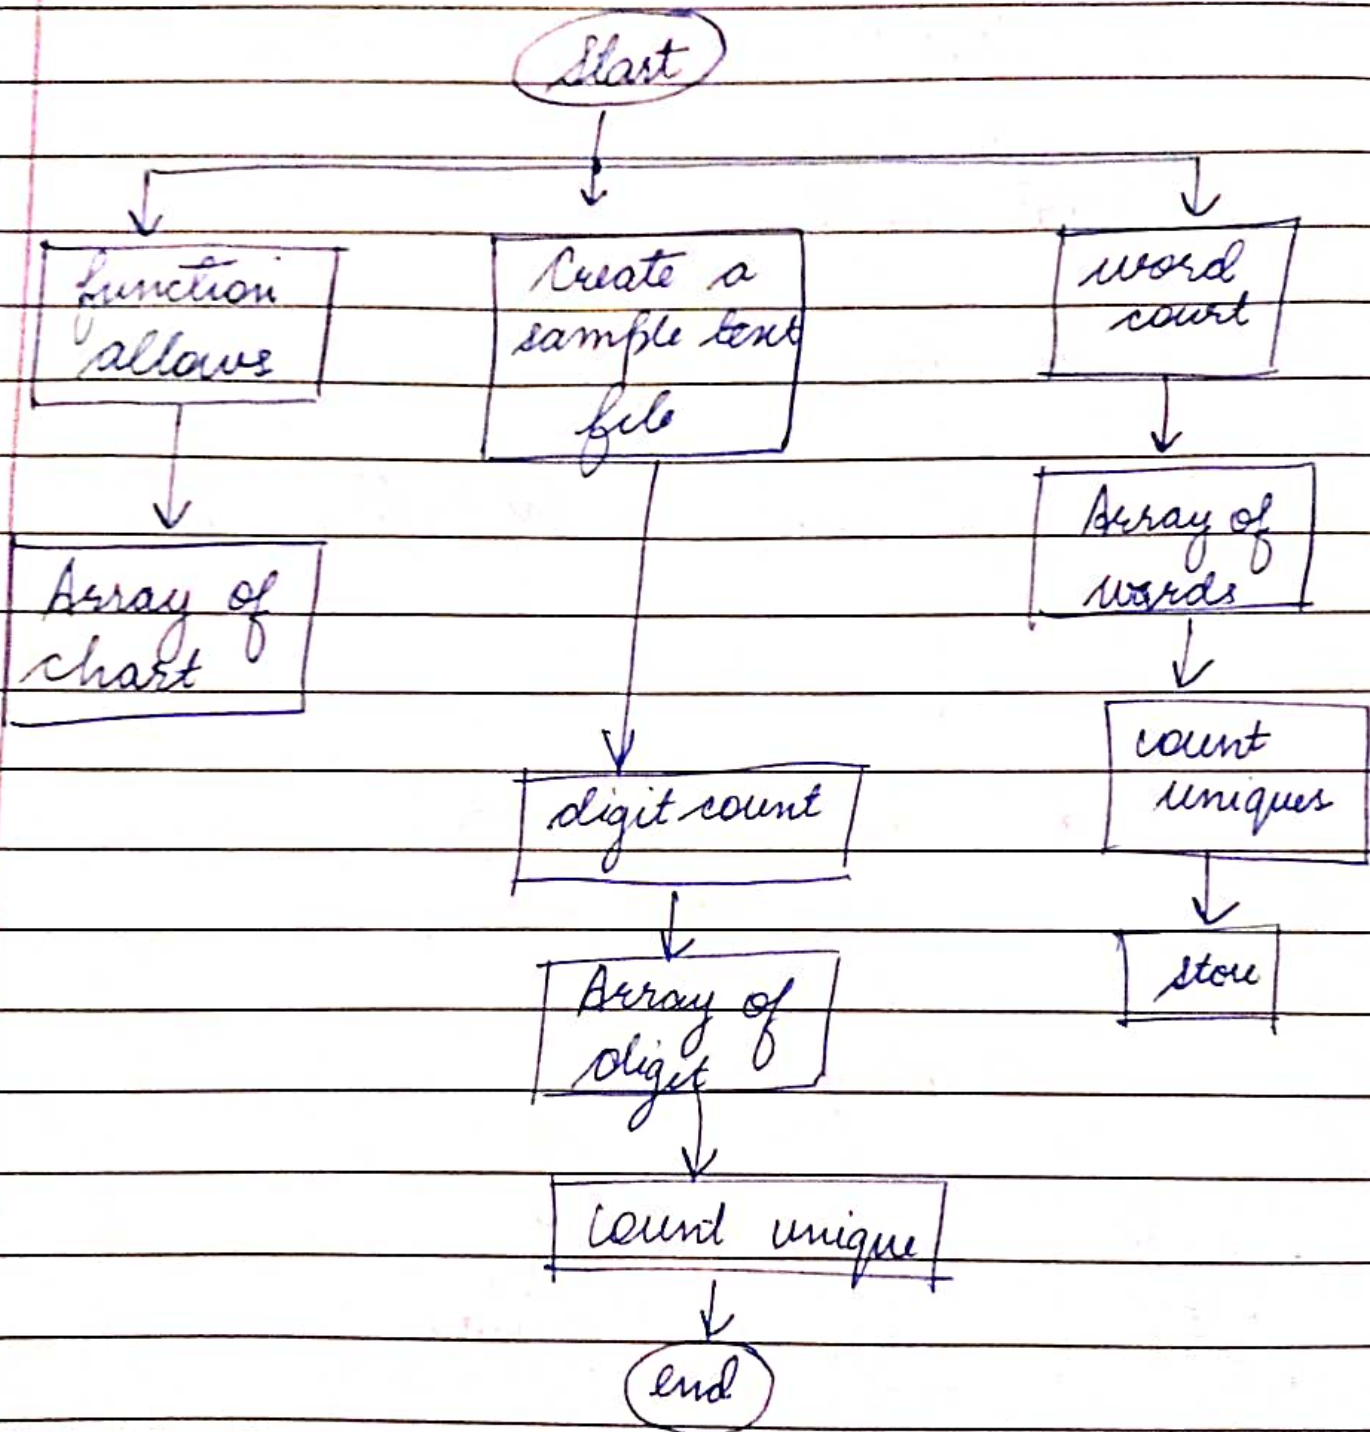 Start
function
allows
Create a
sample text
file
word
court
Array of
chart
Array of
words
count
uniques
digit count
store
Array of
digit
count unique
end